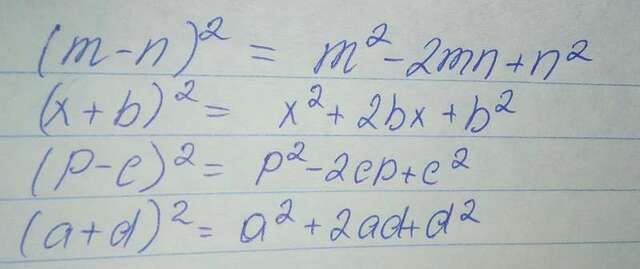 (m-n)² = m²-2mn+n²
(x+b)² = x²+2bx+b²
(p-c)² = p²-2cp+c²
(a+d)² = a²+2ad+d²